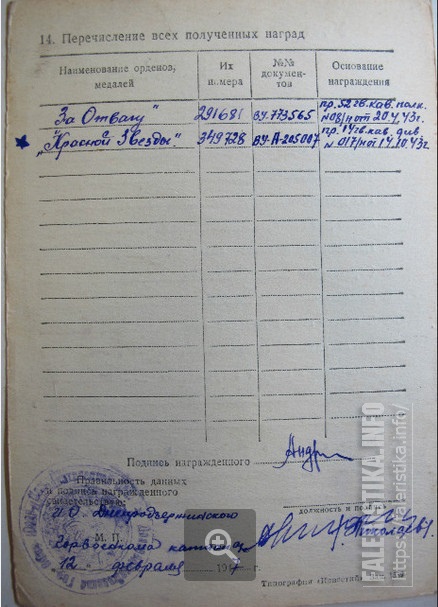 14. Перечисление всех полученных наград
Наименование орденов, медалей
Их номера
№№ документов
Основание награждения
За Отвагу" 291681 ВУ-773565 пр. 52 гв. кав. полк. №08/н от 20.4.43г.
„Красной Звезды" 349728 ВУ-А-205007 пр. 14 гв. кав. див №017/н от 14.10.43г.
Подпись награжденного
Правильность данных
и подпись награжденного
свидетельствую:
должность и
И.О. Днепродзержинского
М. П.
Горвоенкома капитан
Николаев
"12" февраля 19 г.
Типография
FALERISTIKA.INFO
https://faleristika.info